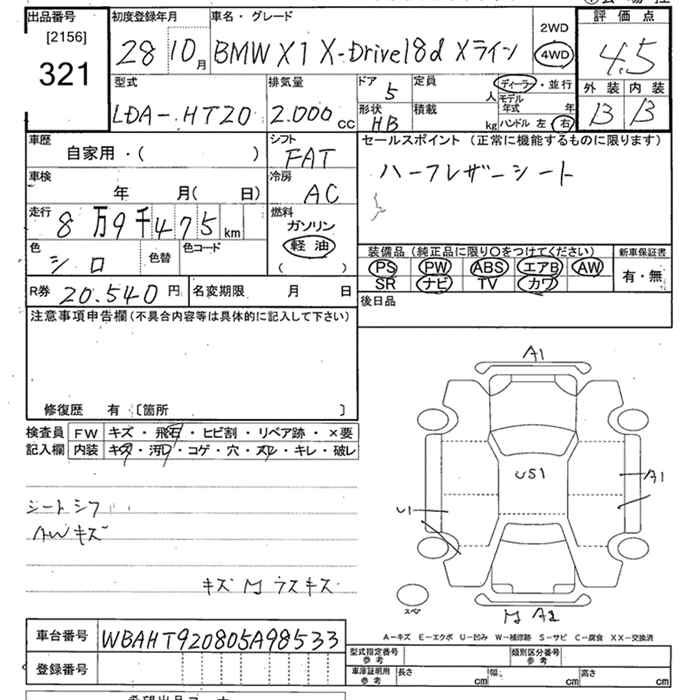 出品番号 初度登録年月 車名・グレード 2WD 評価点
[2156] 28 10月 BMW X1 X-Drive18d Xライン 4WD 4.5
321
型式 排気量 ドア 定員 ディーラー・並行 外装 内装
LDA-HT20 2.000cc 5 人 モデル年式 年 B B
形状 積載 ハンドル 左 右
HB kg
車歴 シフト セールスポイント (正常に機能するものに限ります)
自家用・( ) FAT ハーフレザーシート
車検 冷房
年 月( 日) AC
走行 燃料
8万9千475km ガソリン
色 色替 色コード 軽油
シロ ( )
装備品 (純正品に限り○をつけてください) 新車保証書
PS PW ABS エアB AW 有・無
SR ナビ TV カワ
R券 20.540円 名変期限 月 日 後日品
注意事項申告欄(不具合内容等は具体的に記入して下さい)
修復歴 有 〔箇所 〕
検査員 FW キズ・飛石・ヒビ割・リペア跡・×要
記入欄 内装 キズ・汚レ・コゲ・穴・スレ・キレ・破レ
シートシワ
AWキズ
キズ M ラスキズ
A1
US1
A1
U1
スペア
M A2
A-キズ E-エクボ U-凹み W-補修跡 S-サビ C-腐食 XX-交換済
車台番号 WBAHT920805A98533
登録番号
型式指定番号 参考 類別区分番号 参考
車庫証明用 参考 長さ cm 幅 cm 高さ cm